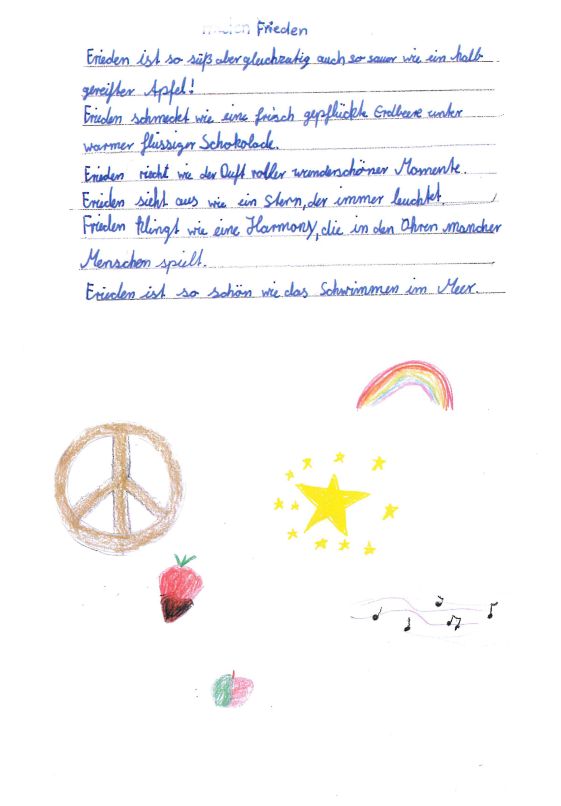 Frieden
Frieden ist so süß aber gleichzeitig auch so sauer wie ein halb-
gereifter Apfel!
Frieden schmeckt wie eine frisch gepflückte Erdbeere unter
warmer flüssiger Schokolade.
Frieden riecht wie der Duft voller wunderschöner Momente.
Frieden sieht aus wie ein Stern, der immer leuchtet.
Frieden klingt wie eine Harmony, die in den Ohren mancher
Menschen spielt.
Frieden ist so schön wie das Schwimmen im Meer.